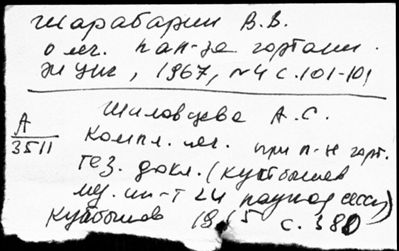 Шарабарин В.В.
о леч. пап-за гортани.
ж УНГ, 1967, №4 с.101-10
Шиловцева А.С.
А
3511
Компл. леч. при п-н горт.
тез. докл. (Куйбышев
мед. ин-т 24 научная сесс)
Куйбышев 1965 с. 38